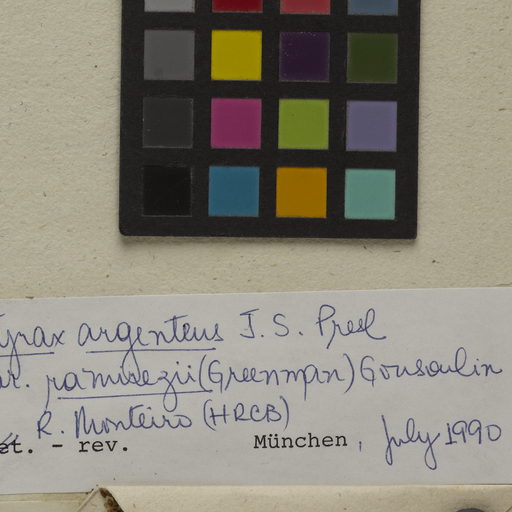 yrax argenteus J. S. Presl
ar. ramirezii (Greenman) Gonsoulin
R. Monteiro (HRCB)
et. - rev. München, July 1990